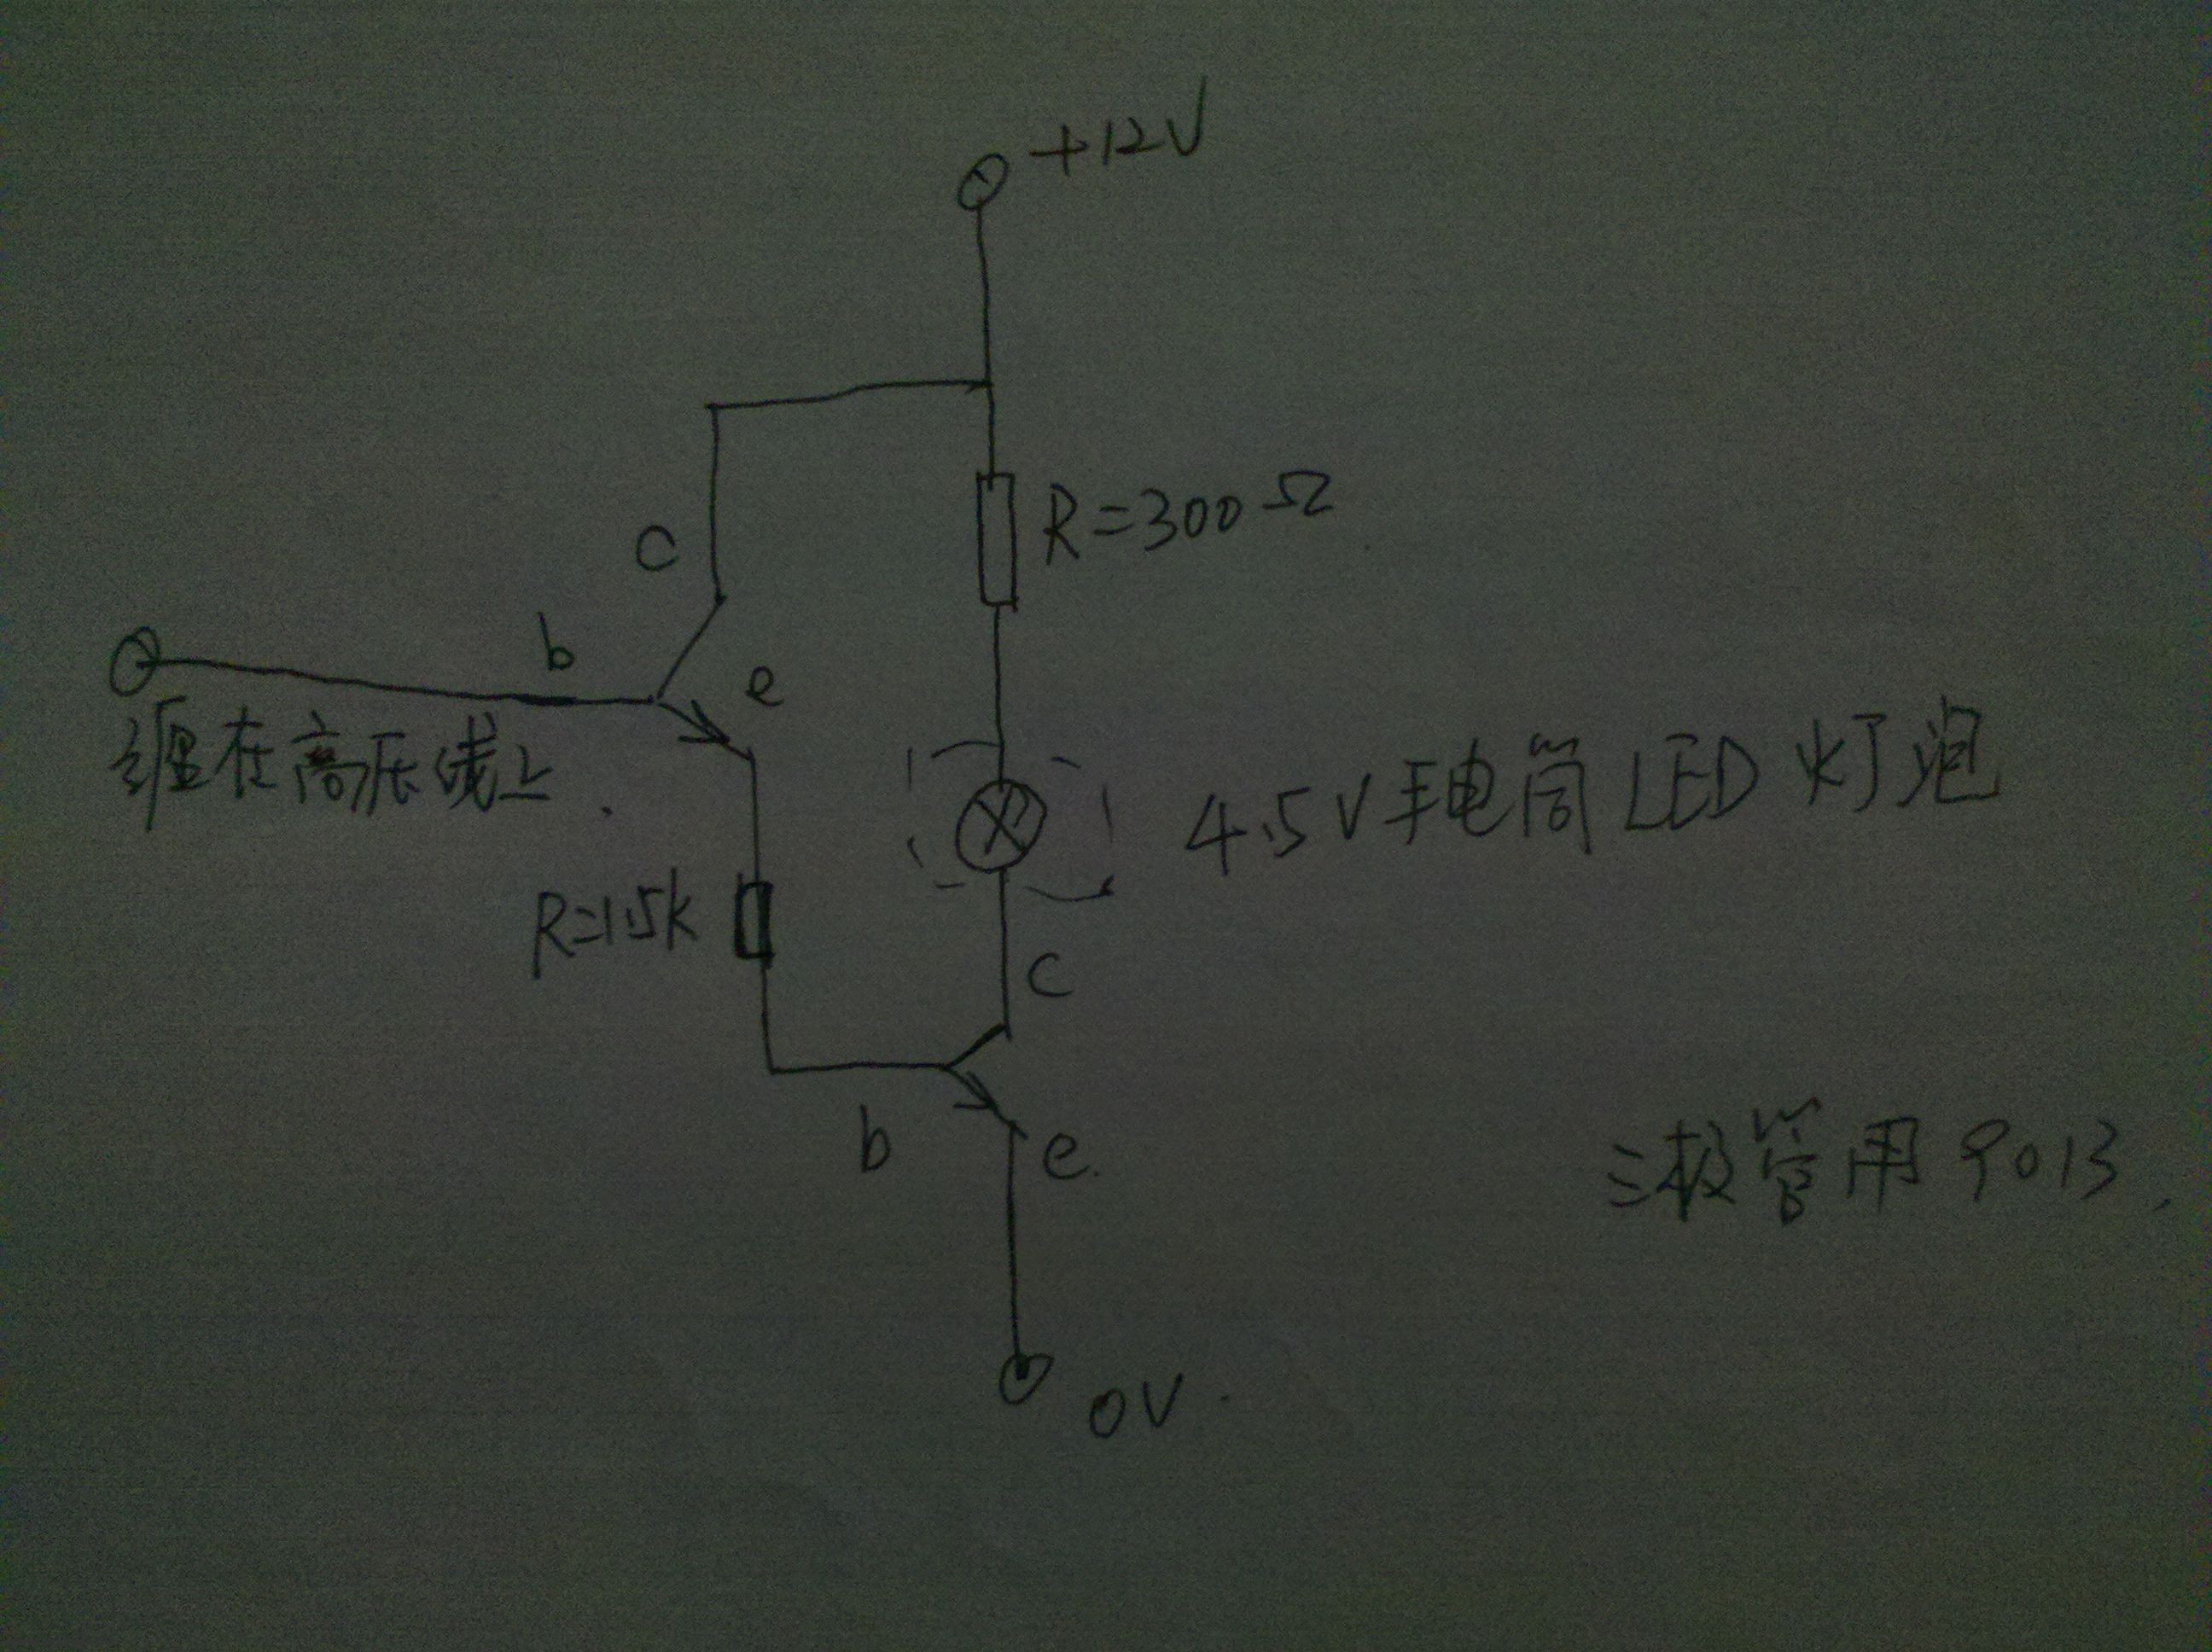 +12V
R=300Ω
c
b
e
缠在高压线上.
4.5V手电筒LED灯泡
R=1.5k
c
b
e.
三极管用9013.
0V.